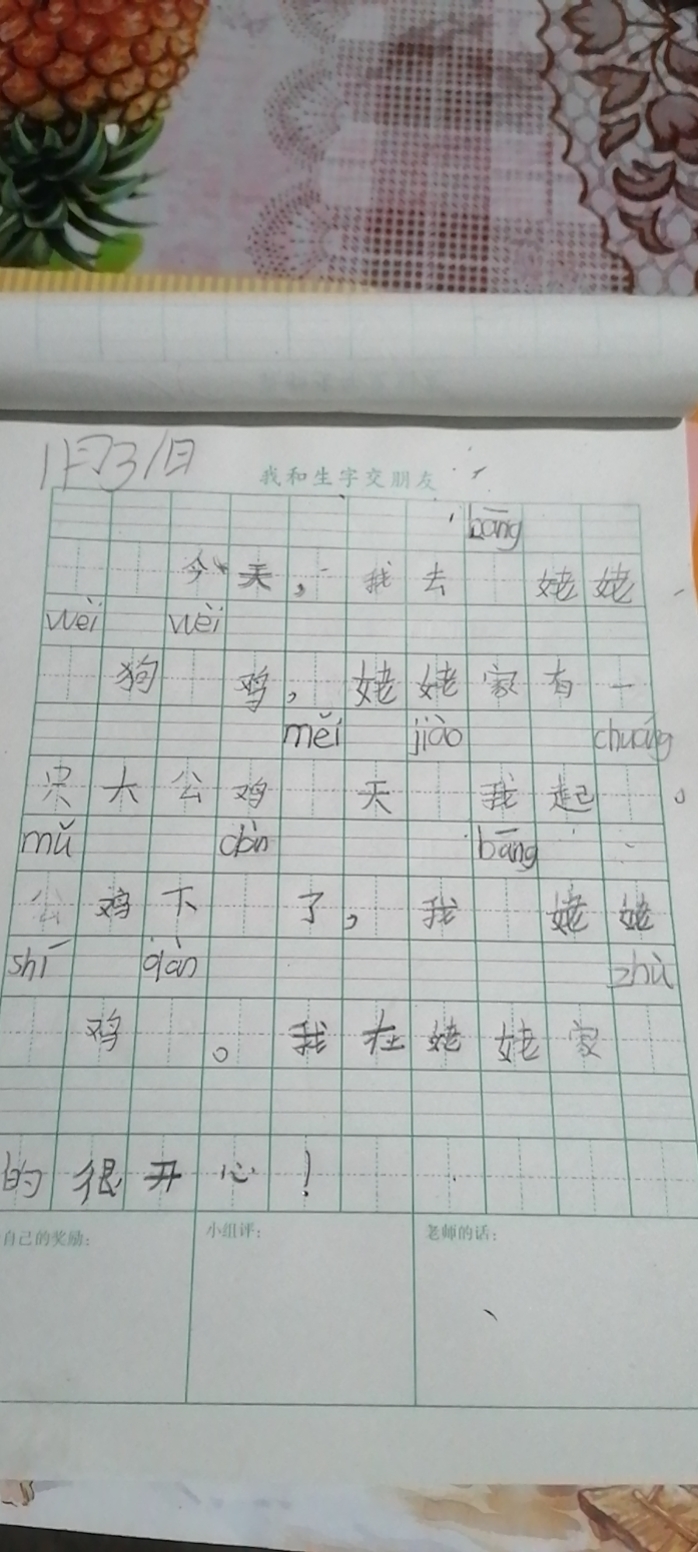 1月31日
我和生字交朋友
bāng
今天,我去 姥姥
wèi wèi
狗 鸡,姥姥家有一
měi jiào chuáng
只大公鸡 天 我起 。
mǔ dàn bāng
公鸡下 了,我 姥姥
shí qiàn zhù
鸡 。我在姥姥家
的很开心!
自己的奖励: 小组评: 老师的话: